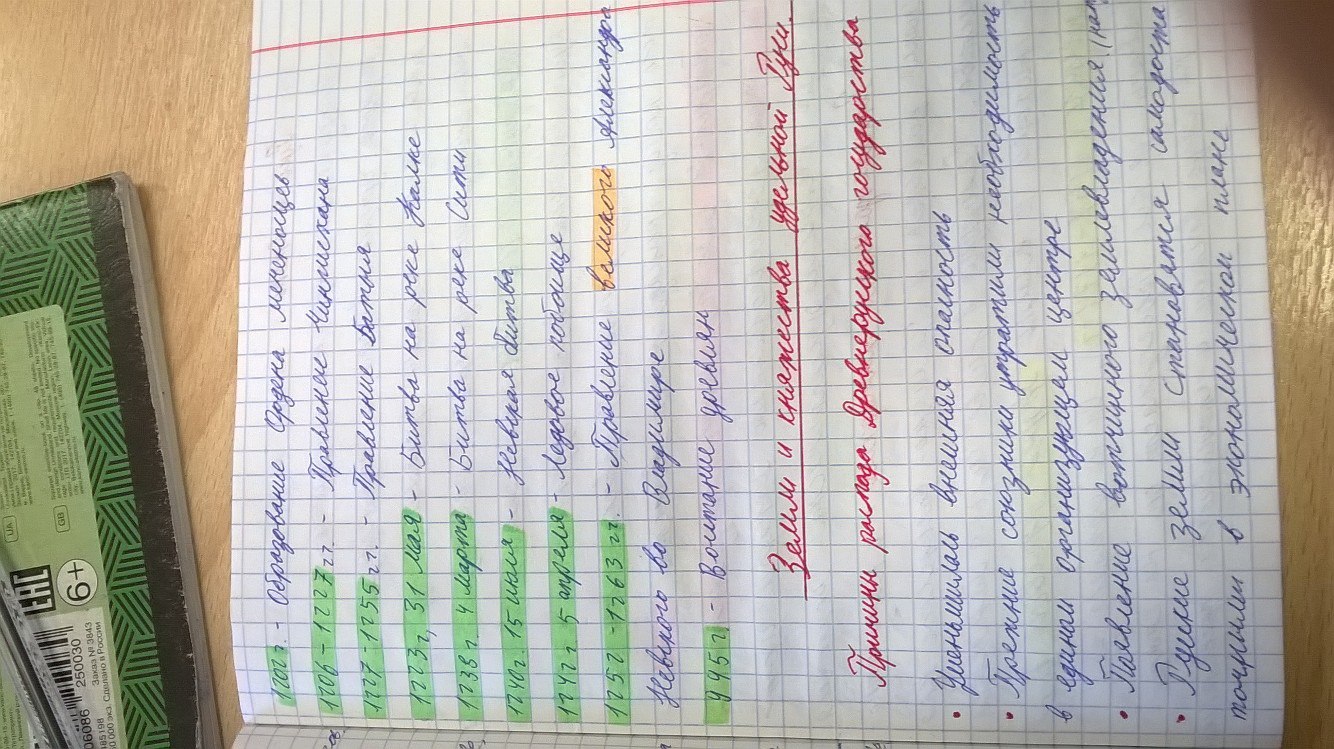 1202 г. - Образование Ордена меченосцев
1206 - 1227 гг. - Правление Чингисхана
1227 - 1255 гг. - Правление Батыя
1223 г, 31 мая - Битва на реке Калке
1238 г. 4 марта - Битва на реке Сити
1240 г. 15 июля - Невская битва
1242 г 5 апреля - Ледовое побоище
1252 - 1263 гг. - Правление великого Александра
Невского во Владимире
945 г. - Восстание древлян
Земли и княжества удельной Руси.
Причины распада Древнерусского государства
• Уменьшилась внешняя опасность
• Прежние союзники утратили необходимость
в едином организующем центре
• Появление вотчинного землевладения (нас
• Русские земли становятся самодоста
точными в экономической плане
UA
GB
EAC
6+
06086
250030
485198
Заказ № 3843
00 000 экз. Сделано в России